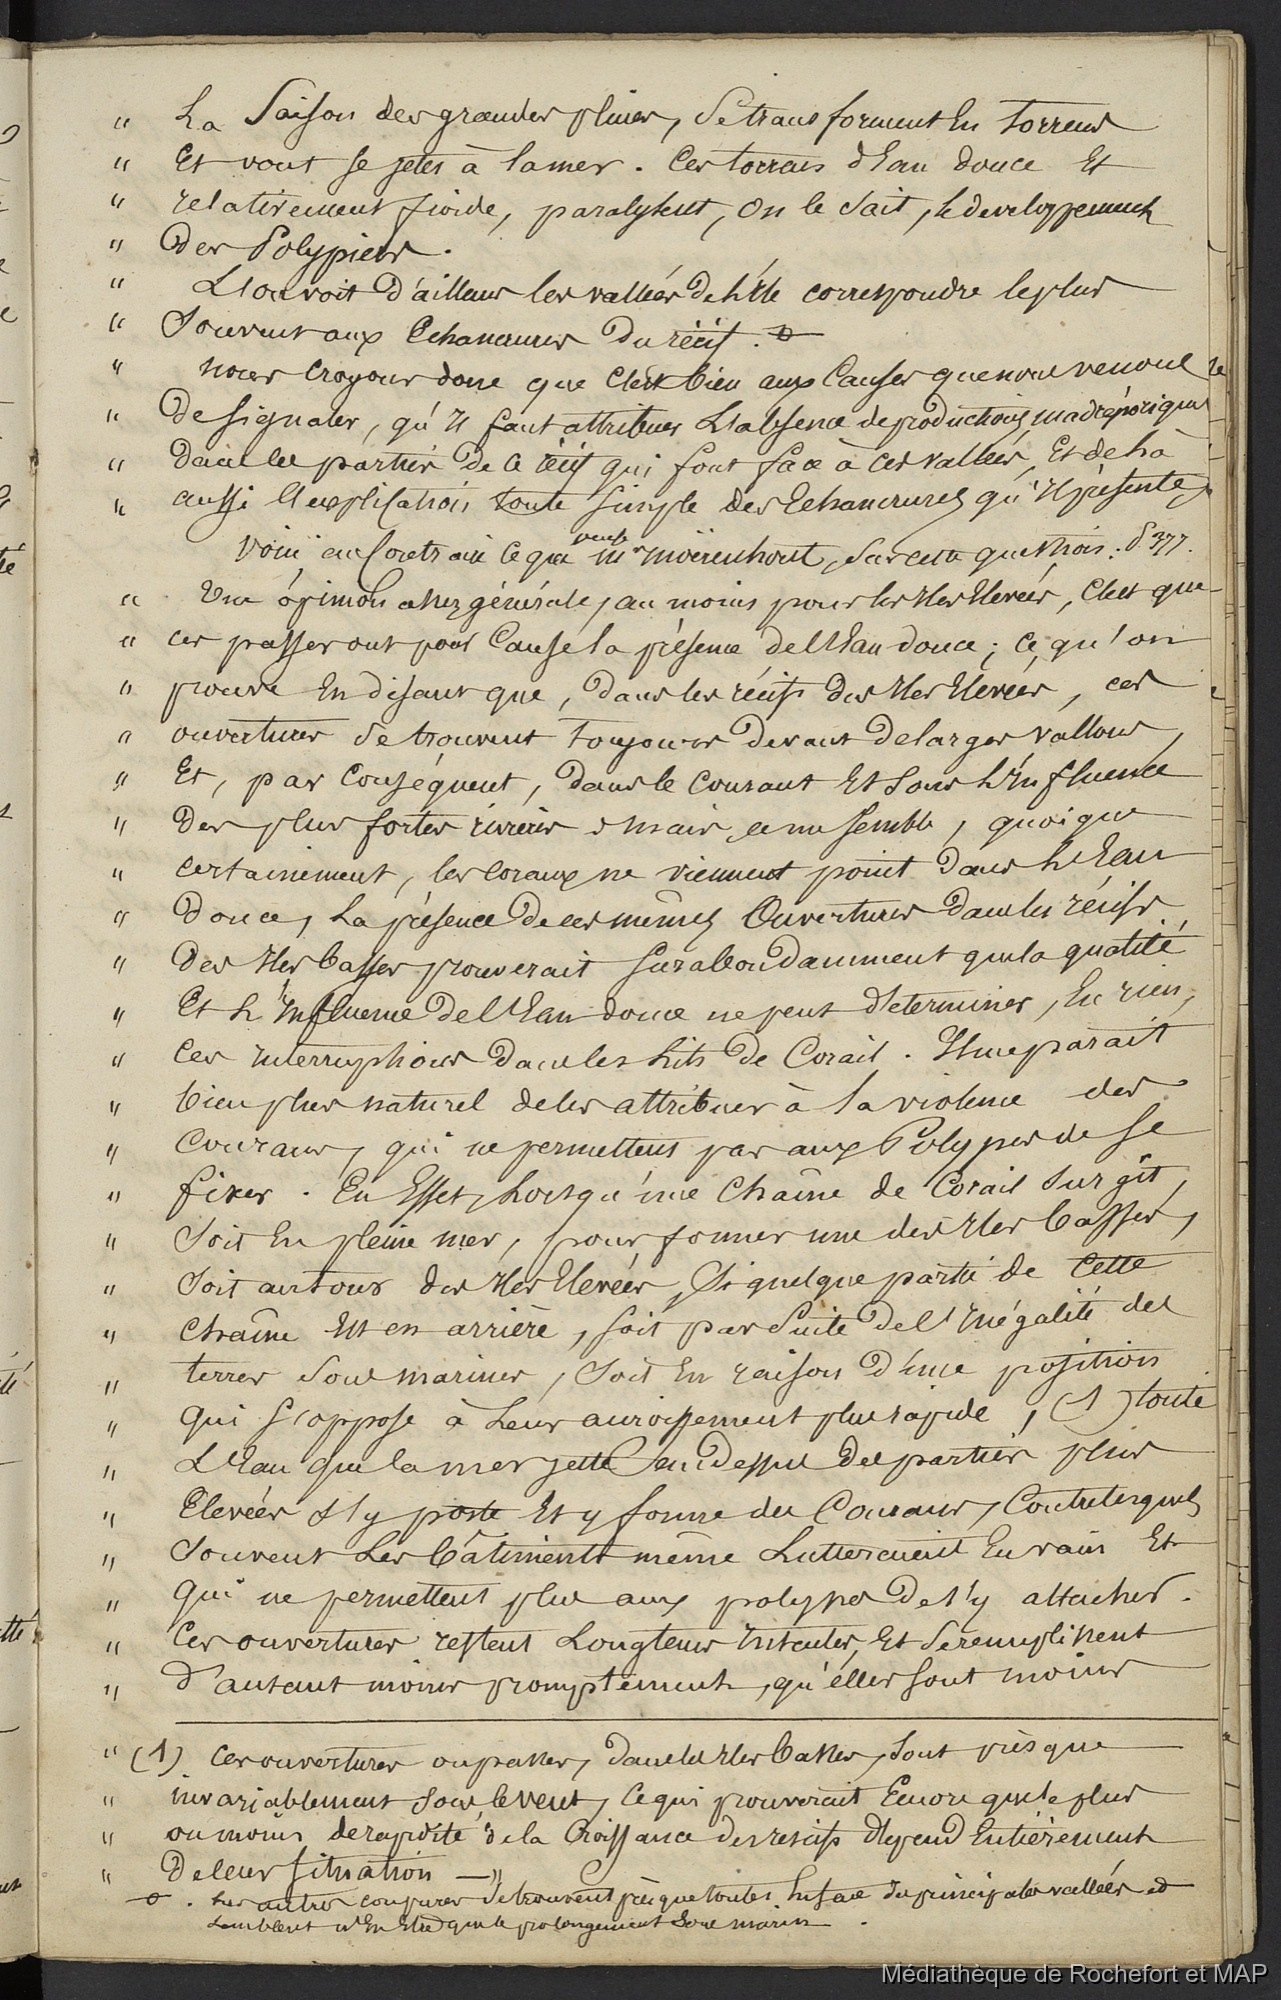 " La Saison des grandes pluies, se transforment En torrens
" Et vont se jeter à la mer. Ces torrens d'Eau douce Et
" relativement froide, paralysent, on le sait, le developpement
" Des Polypiers.
" L'on voit D'ailleurs les vallées De L'île correspondre le plus
" Souvent aux Echancrures Du récif.
" nous croyons donc que C'est bien aux Causes que nous venons
" De signaler, qu'il faut attribuer L'absence de productions madréporiques
" Dans les parties De ce récif qui font face à ces vallées, Et de Là
" aussi L'explication toute Simple des Echancrures qu'il présente,
Voici, au Contraire ce que pense Mr Moërenhout, Sur cette question: P 377.
" Une opinion assez générale, au moins pour les Iles Elevées, C'est que
" ces passes ont pour Cause la présence de l'Eau douce; ce qu'on
" prouve En disant que, Dans les récifs des Iles Elevées, ces
" ouvertures se trouvent Toujours devant de larges vallons,
" Et, par Conséquent, Dans le Courant Et sous L'Influence
" Des plus fortes rivières; mais, ce me semble, quoique
" certainement, les Coraux ne viennent point Dans L'Eau
" Douce, La présence De ces mêmes Ouvertures Dans les récifs
" Des Iles basses prouverait Surabondamment que la qualité
" Et L'Influence De l'Eau douce ne peut déterminer, En rien,
" Ces Interruptions Dans les Lits De Corail. Il me parait
" bien plus naturel de les attribuer à La violence des
" Courans, qui ne permettent pas aux Polypes de se
" fixer. En Effet, Lorsqu'une Chaîne de Corail Surgit,
" Soit En pleine mer, pour former une des Iles basses,
" Soit autour des Iles Elevées, Si quelque partie de Cette
" Chaîne Est en arrière, soit par Suite De l'Inégalité des
" terres Sous marines, Soit En raison D'une position
" Qui S'oppose à Leur accroissement plus rapide, (1) toute
" L'Eau que la mer jette au Dessus Des parties plus
" Elevées s'y porte Et y forme des Courans, Contre lesquels
" Souvent Les bâtiments même Lutteraient En vain Et
" Qui ne permettent plus aux polypes De s'y attacher.
" Ces ouvertures restent Longtems Intactes, Et se remplissent
" D'autant moins promptement, qu'elles sont moins
" (1) Ces ouvertures ou passes, Dans les Iles basses, Sont presque
" invariablement Sous le vent, Ce qui prouverait Encore que le plus
" ou moins de rapidité de la Croissance Des rescifs dépend Entièrement
" De leur situation — "
Les autres coupures Se trouvent presque toutes En face des principales vallées et
Semblent n'En Etre que le prolongement Sous marin.
Médiathèque de Rochefort et MAP